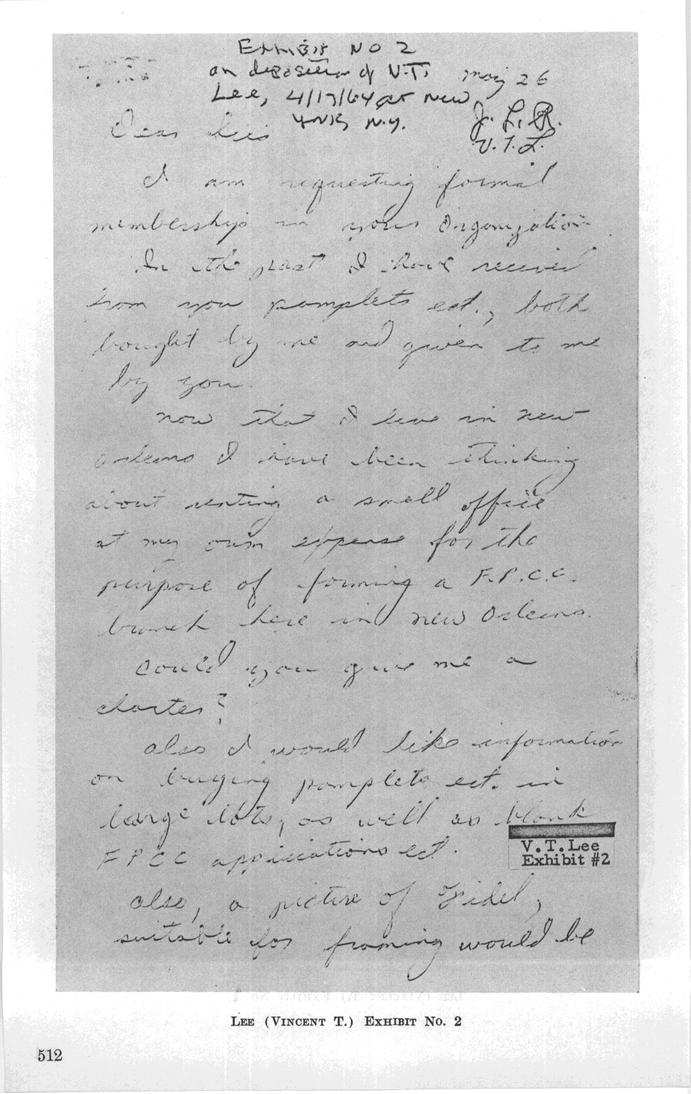 Exhibit No 2
on deposition of V.T.
Lee, 4/17/64 at New
York N.Y.
May 26
J. L. R.
V. T. L.
Dear Sirs
I am requesting formal
membership in your Organization.
In the past I have received
from you pamplets ect., both
bought by me and given to me
by you.
Now that I live in New
Orleans I have been thinking
about renting a small office
at my own expense for the
purpose of forming a F.P.C.C.
branch here in New Orleans.
Could you give me a
charter?
Also I would like information
on buying pamplets ect. in
large lots, as well as blank
FPCC applications ect.
Also, a picture of Fidel,
suitable for framing would be
V.T. Lee
Exhibit #2
LEE (VINCENT T.) EXHIBIT NO. 2
512